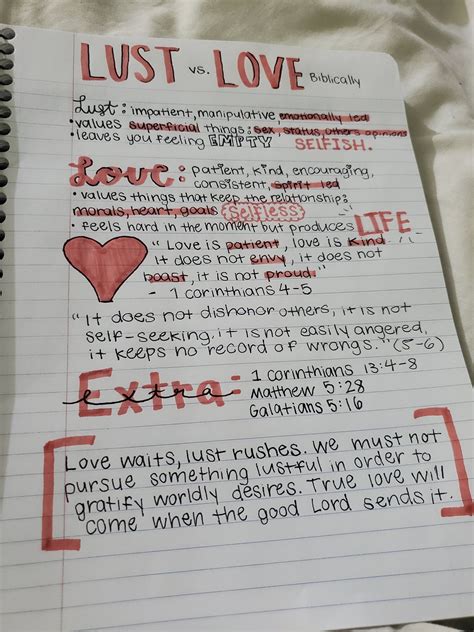 LUST vs. LOVE Biblically
Lust: impatient, manipulative emotionally led
• values superficial things: sex, status, others opinions
• leaves you feeling EMPTY SELFISH.
Love: patient, kind, encouraging,
consistent, spirit led
• values things that keep the relationship:
morals, heart, goals selfless
• feels hard in the moment but produces LIFE
"Love is patient, love is kind.
it does not envy, it does not
boast, it is not proud."
- 1 corinthians 4-5
"It does not dishonor others, it is not
self-seeking, it is not easily angered,
it keeps no record of wrongs." (5-6)
Extra: 1 corinthians 13:4-8
extra Matthew 5:28
Galatians 5:16
Love waits, lust rushes. We must not
pursue something lustful in order to
gratify worldly desires. True love will
come when the good Lord sends it.